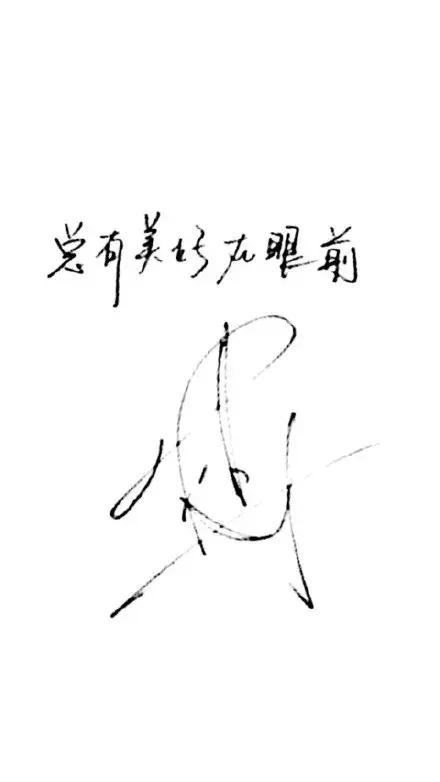 总有美好在眼前